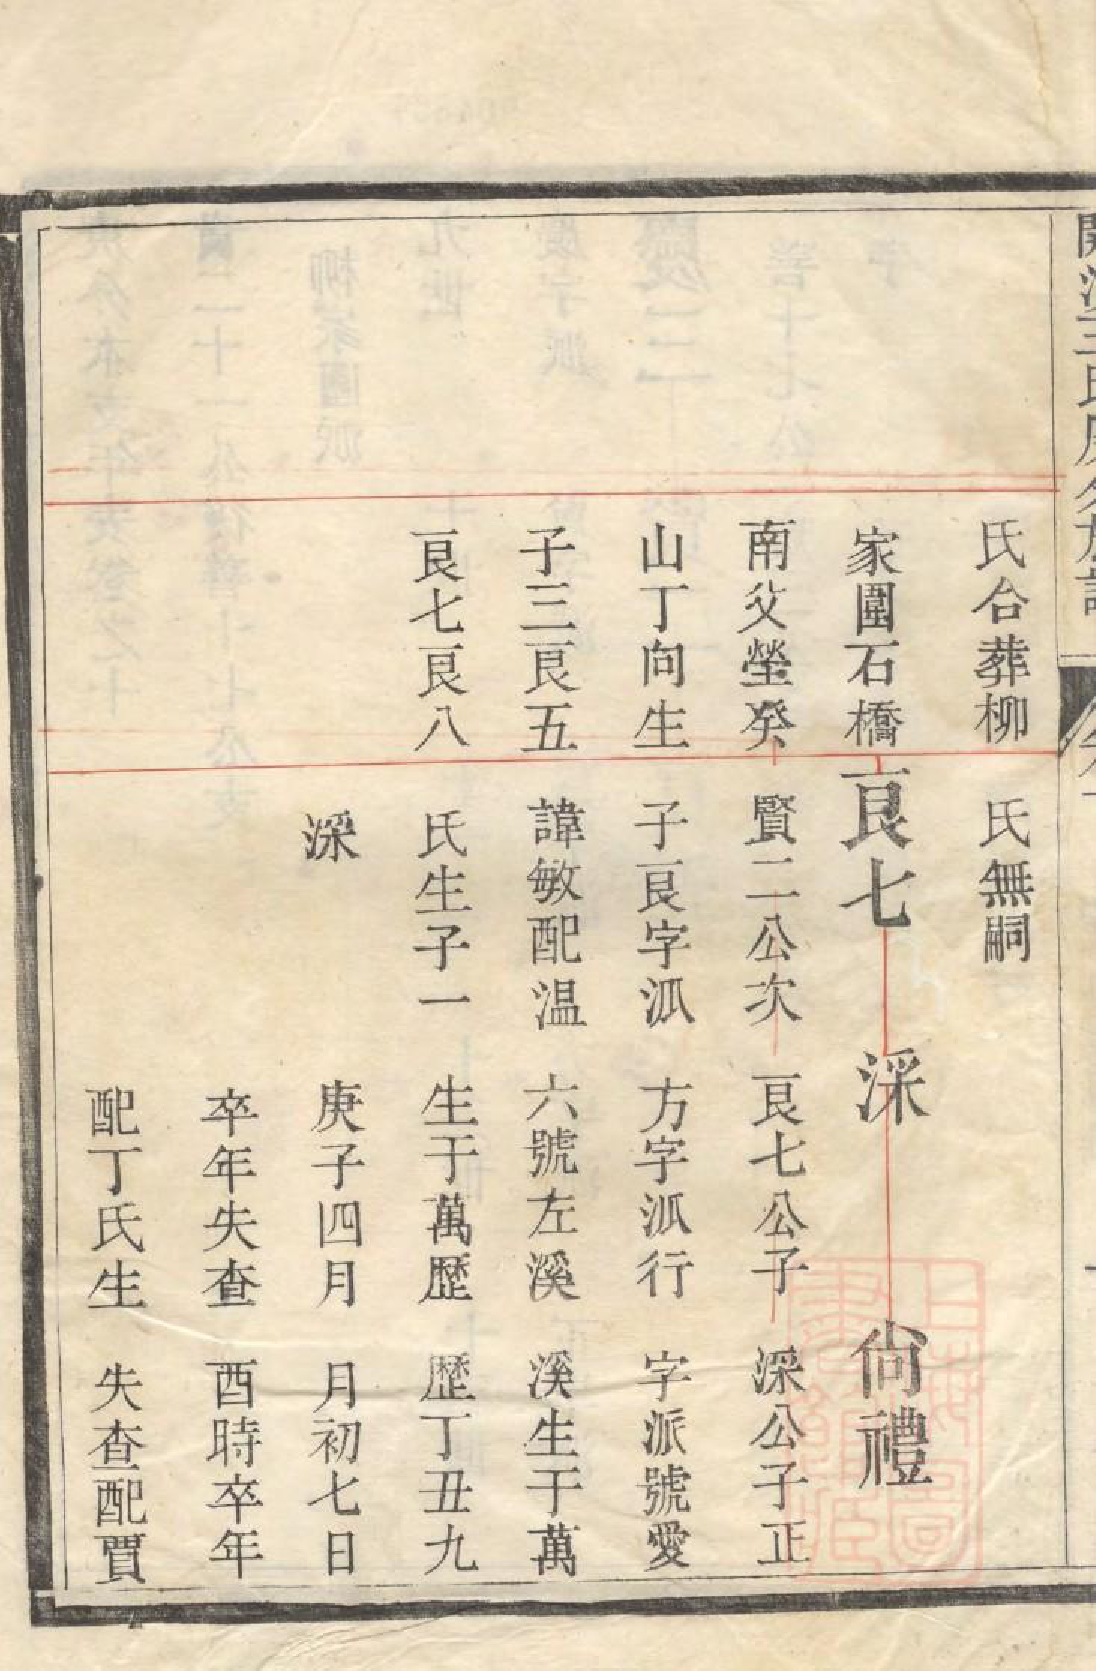 氏合葬柳
家圍石橋
南父塋癸
山丁向生
子三艮五
艮七艮八
氏無嗣
艮七
賢二公次
子艮字泒
諱敏配温
氏生子一
深
深
艮七公子
方字泒行
六號左溪
生于萬歷
庚子四月
卒年失查
配丁氏生
尙禮
深公子正
字派號愛
溪生于萬
歷丁丑九
月初七日
酉時卒年
失查配賈
上海圖書館藏